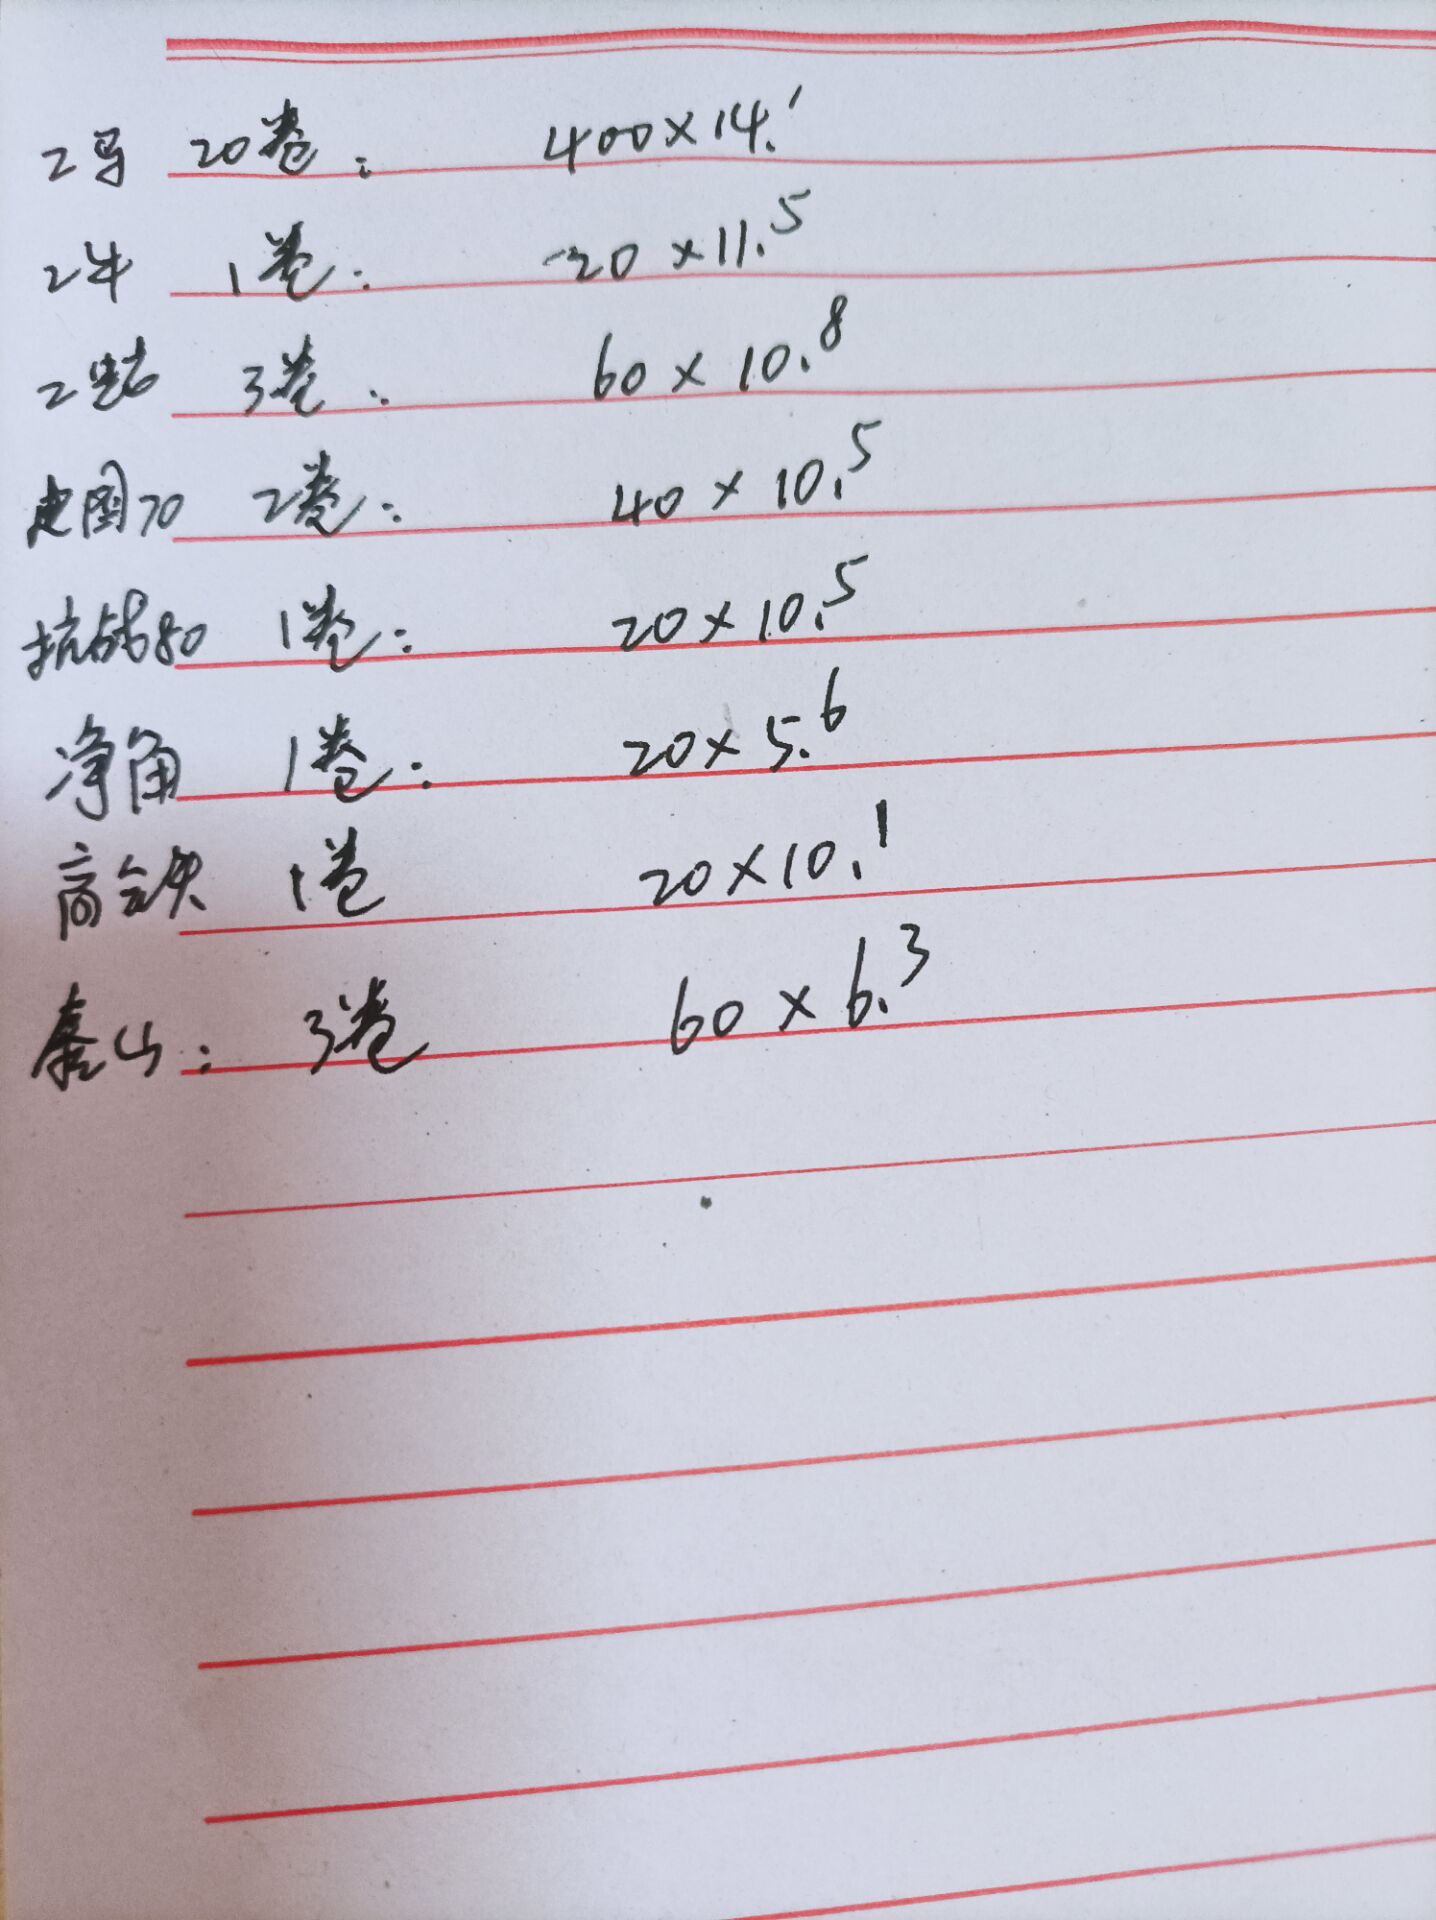 2马 20卷: 400×14.1
2牛 1卷: 20×11.5
2 3卷: 60×10.8
建国70 2卷: 40×10.5
抗战80 1卷: 20×10.5
净角 1卷: 20×5.6
高铁 1卷 20×10.1
泰山: 3卷 60×6.3